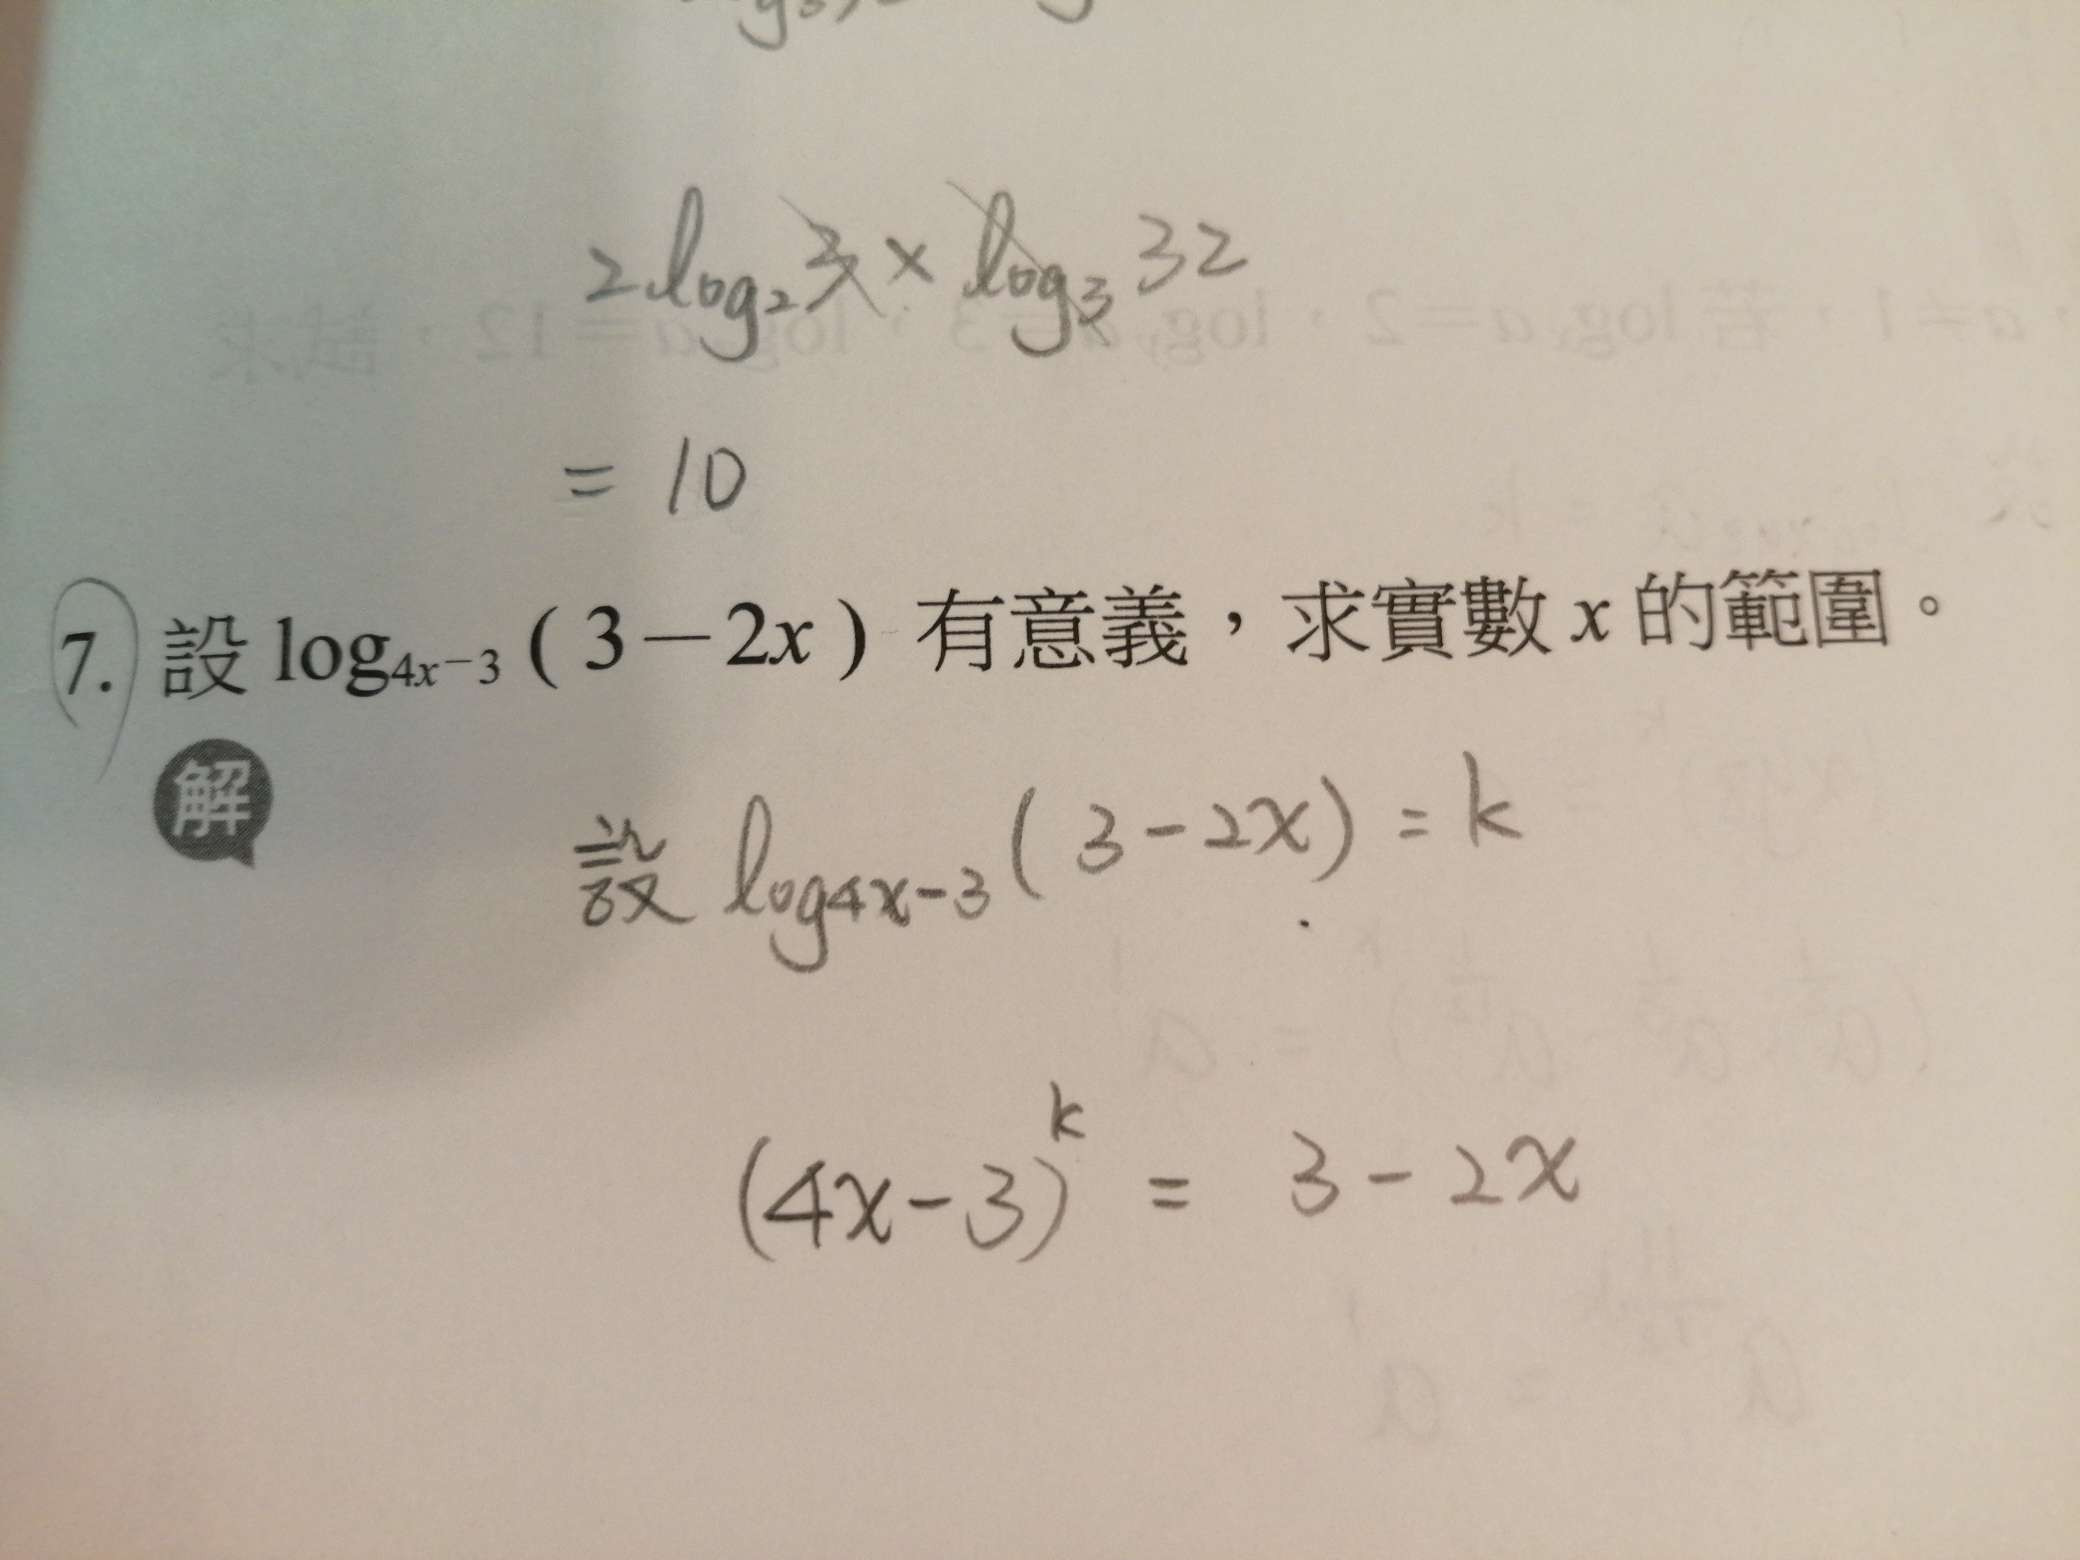 2log₂3 × log₃32
= 10
7. 設 log₄ₓ₋₃ ( 3－2x ) 有意義，求實數 x 的範圍。
解
設 log₄ₓ₋₃ ( 3 - 2x ) = k
(4x-3)ᵏ = 3 - 2x